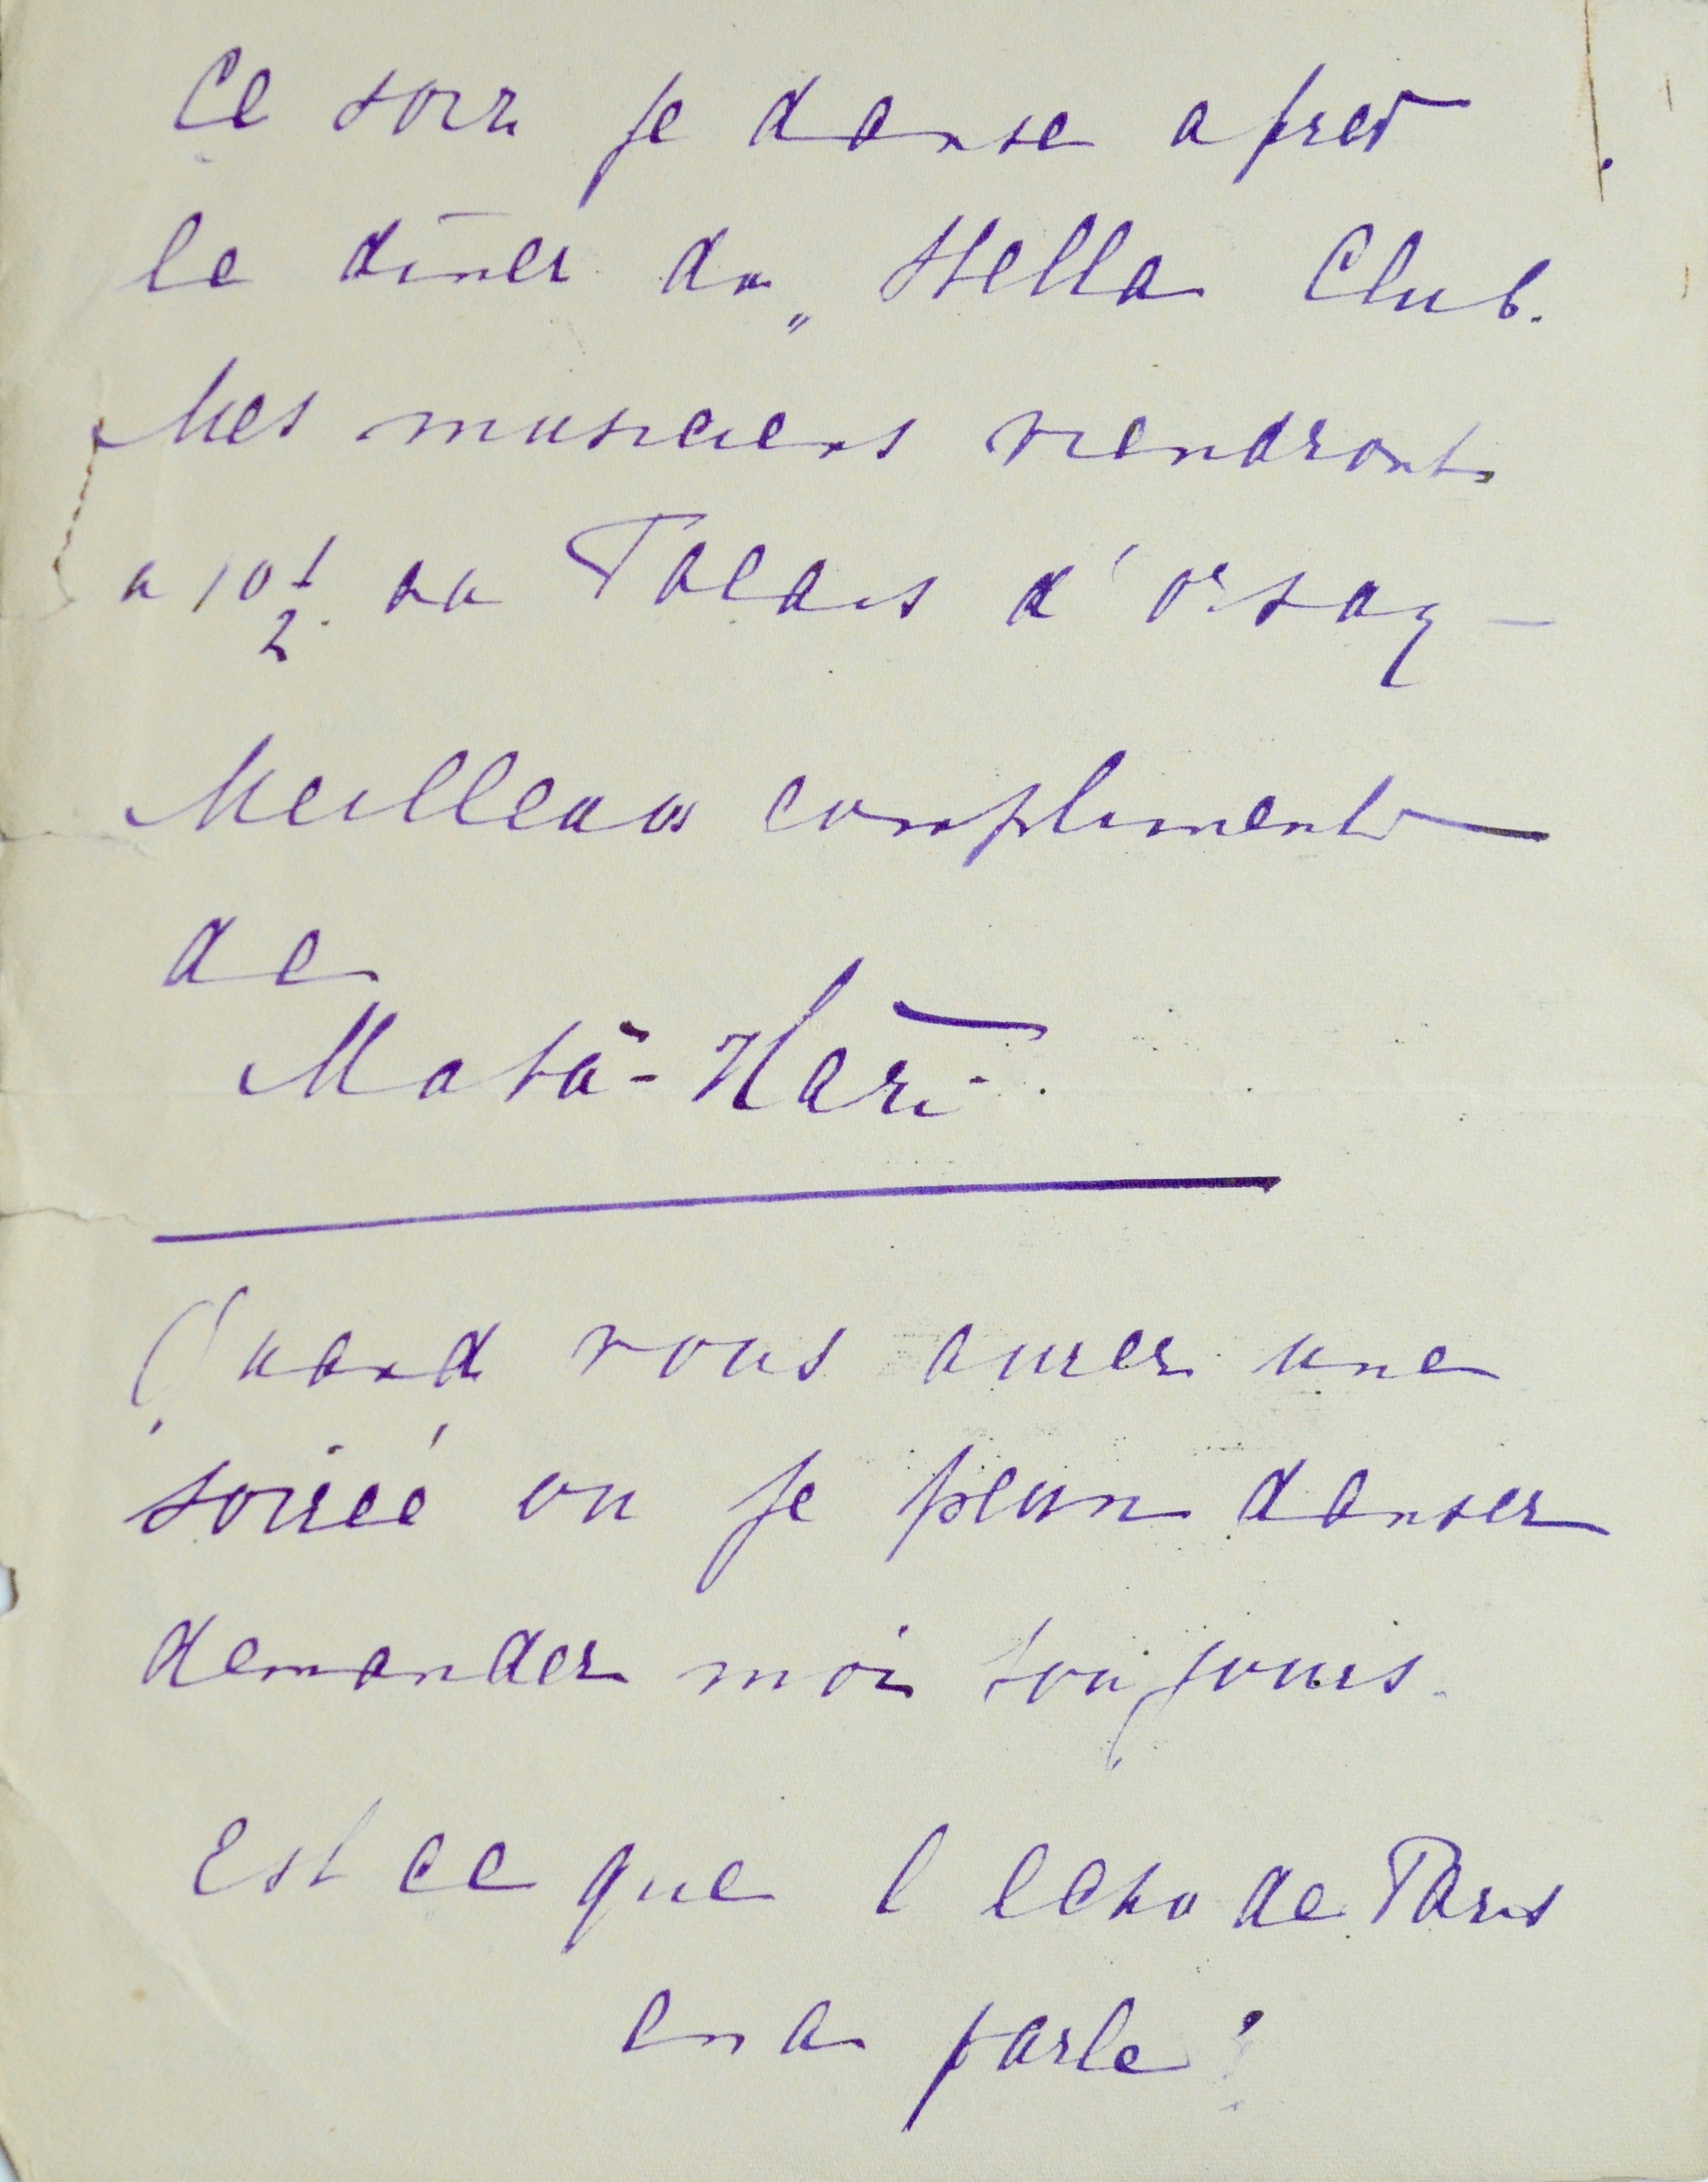 Ce soir je danse apres
le diner du „Stella Club.
Mes musiciens viendront
a 10 1/2 au Palais d'orsay -
Meilleurs compliments
de
Mata-Hari.
Quand vous aurez une
soireé ou je peux danser
demander moi toujours.
Est ce que l echo de Paris
en a parle ?